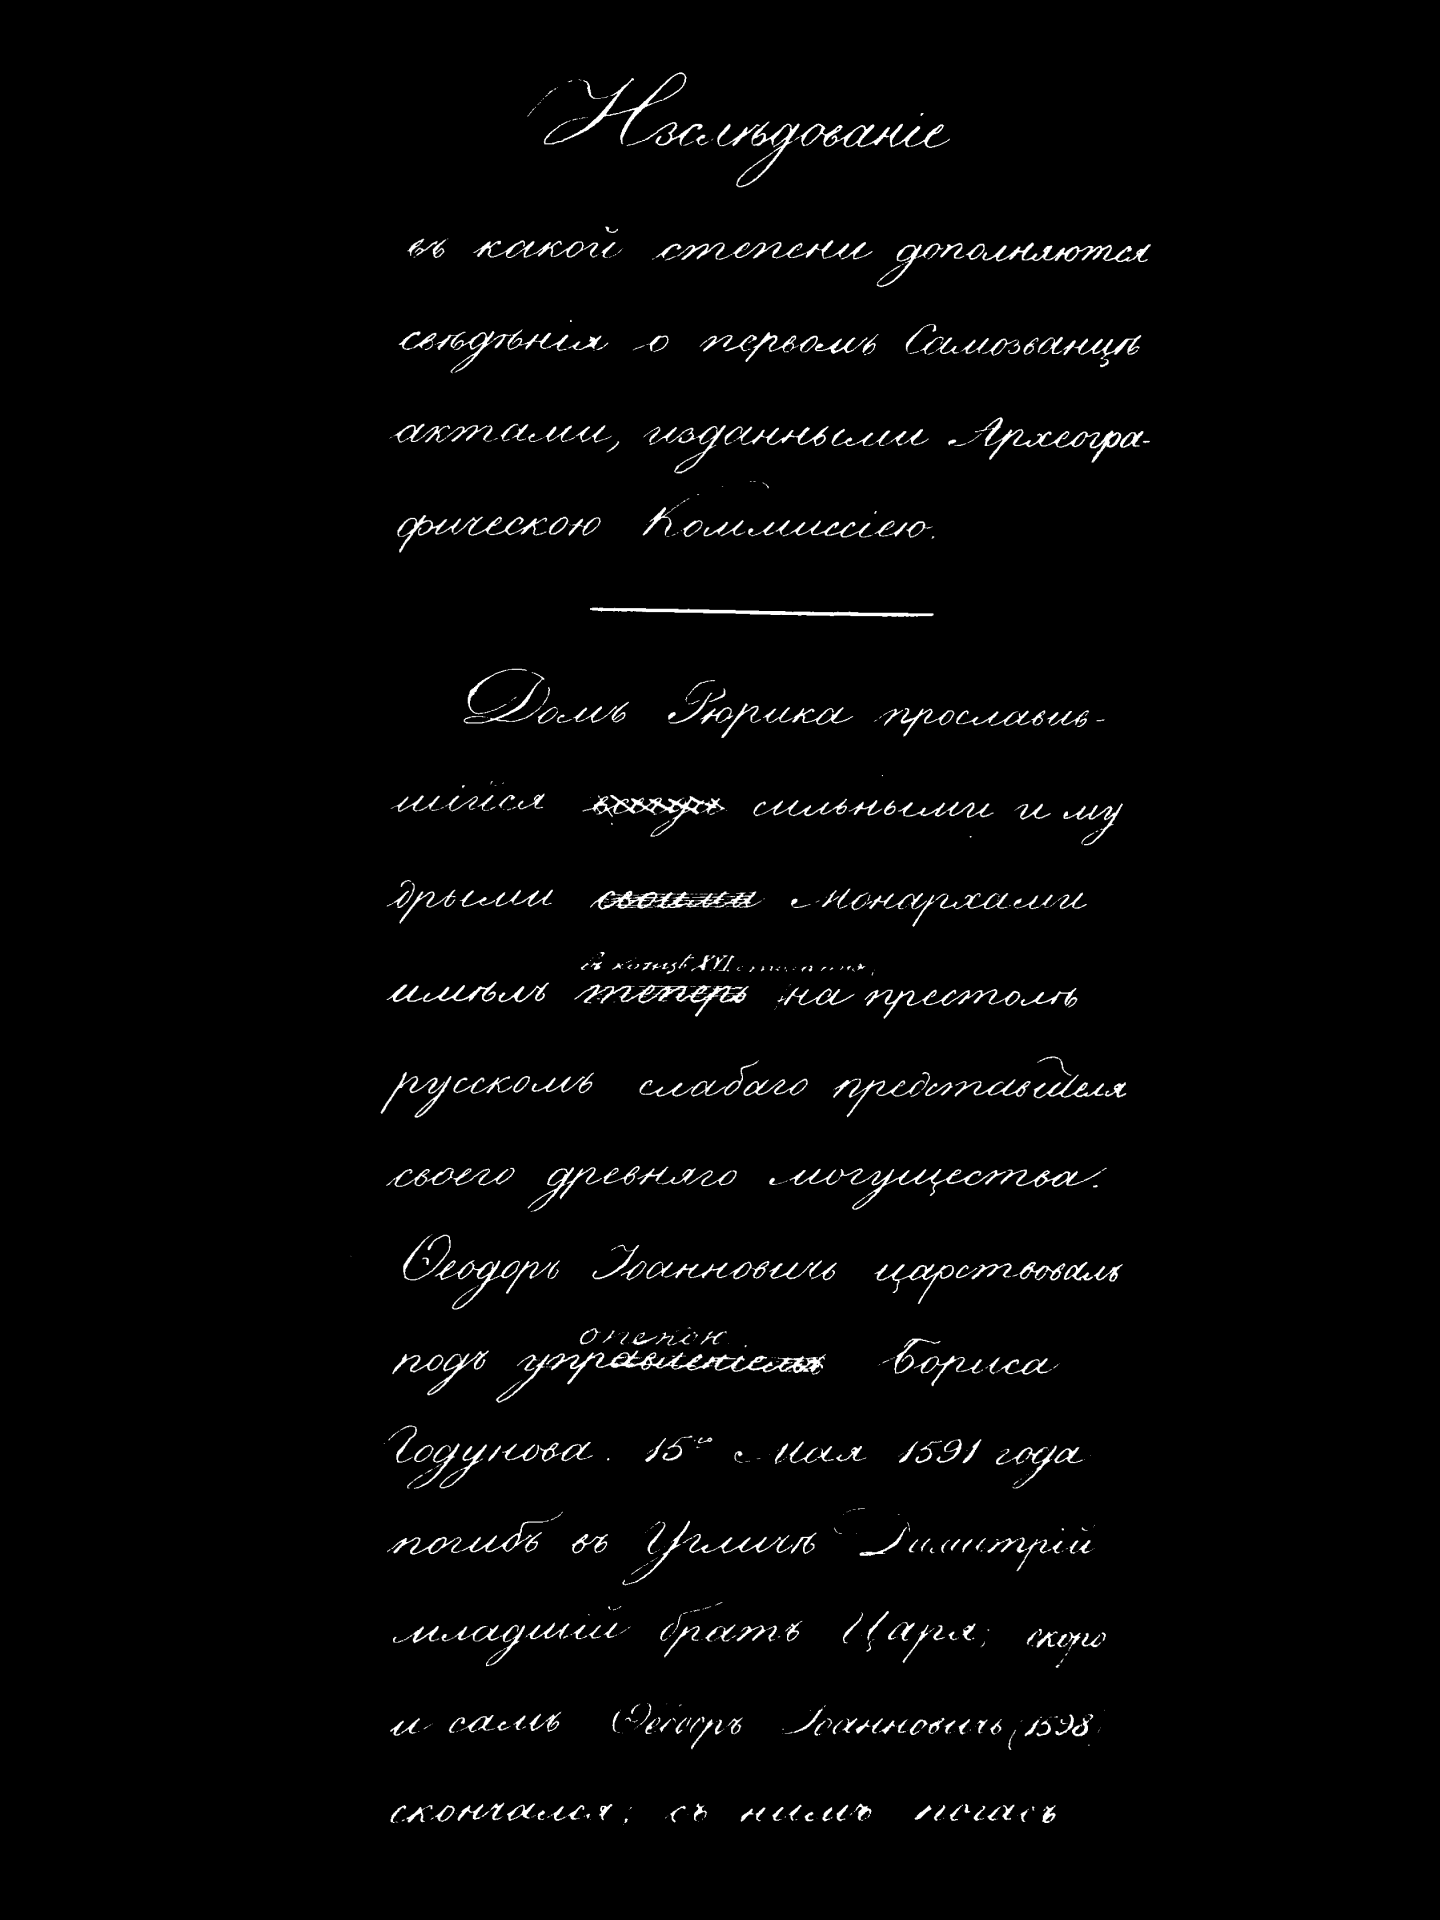 Изслѣдованіе
въ какой степени дополняются
свѣдѣнія о первомъ Самозванцѣ
актами, изданными Археогра-
фическою Коммиссіею.
Домъ Рюрика прославив-
шійся сильными и му
дрыми своими монархами
въ концѣ XVI столѣтія,
имѣлъ теперь на престолѣ
русскомъ слабаго представителя
своего древняго могущества.
Ѳеодоръ Іоанновичь царствовалъ
опекою
подъ управленіемъ Бориса
Годунова. 15го Мая 1591 года
погибъ въ Угличѣ Димитрій
младшій братъ Царя; скоро
и самъ Ѳеодоръ Іоанновичь (1598)
скончался; съ нимъ погасъ